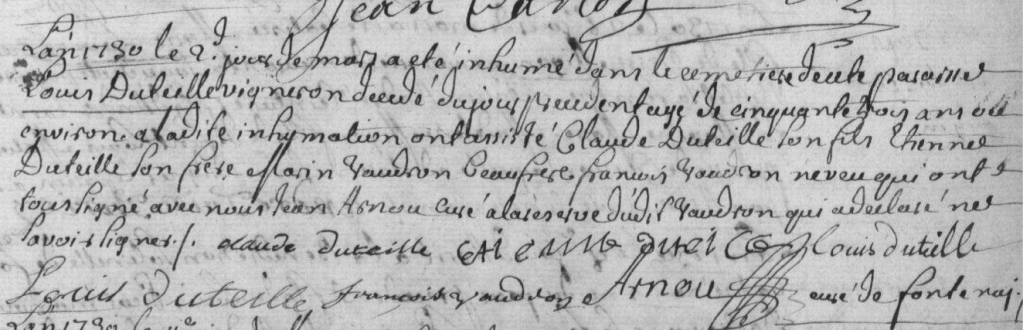 Jean
L'an 1730 le 2.d jour de mars a eté inhumé dans le cemetiere de cete paroisse
Louis Duteille vigneron decedé du jour precedent agé de cinquante trois ans ou
environ. a ladite inhumation ont assisté Claude Duteille son fils Etienne
Duteille son frere Marin Vaudron beaufrere francois Vaudron neveu qui ont
tous signé avec nous Jean Arnou curé a la reserve dudit Vaudron qui a declaré ne
savoir signer./. claude duteille etienne duteille louis duteille
Louis duteille francois vaudron Arnou curé de fontenai.
L'an 1730 le